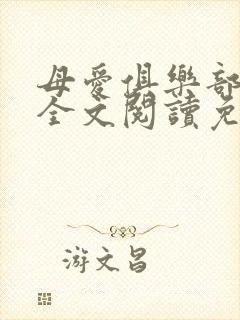 母愛俱樂部
全文閱讀免
游文昌